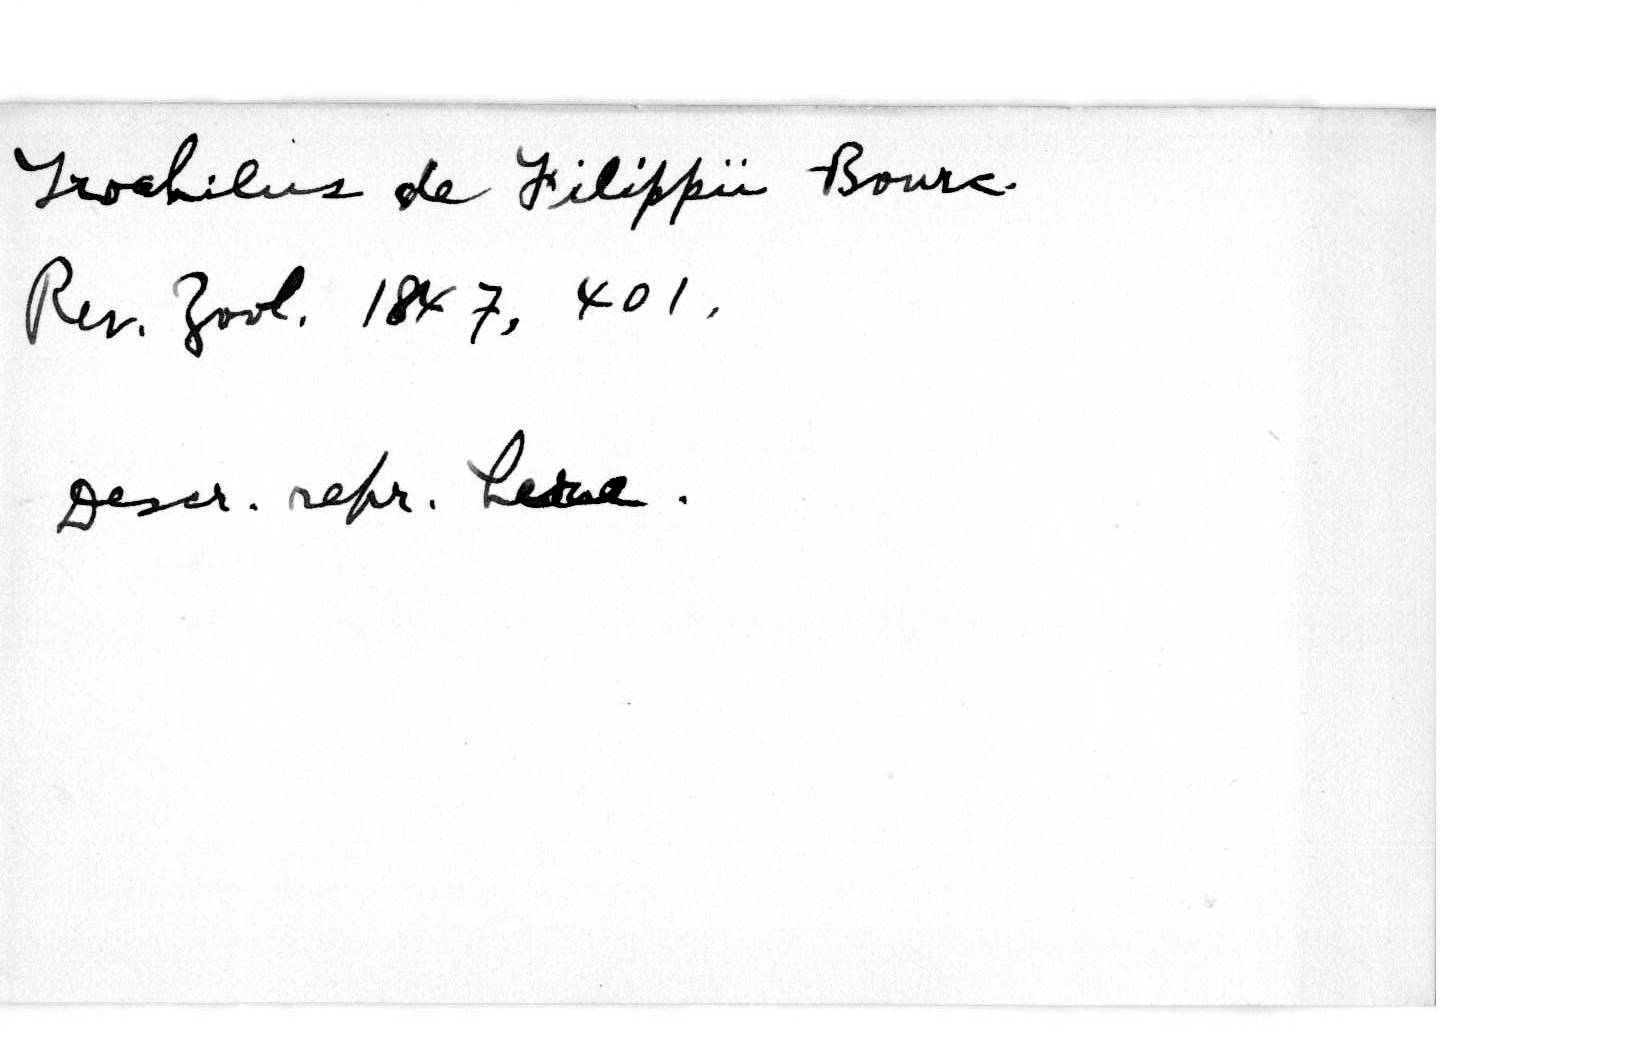 Trochilus de Filippii Bourc.
Rev. Zool. 1847, 401.
Descr. repr.